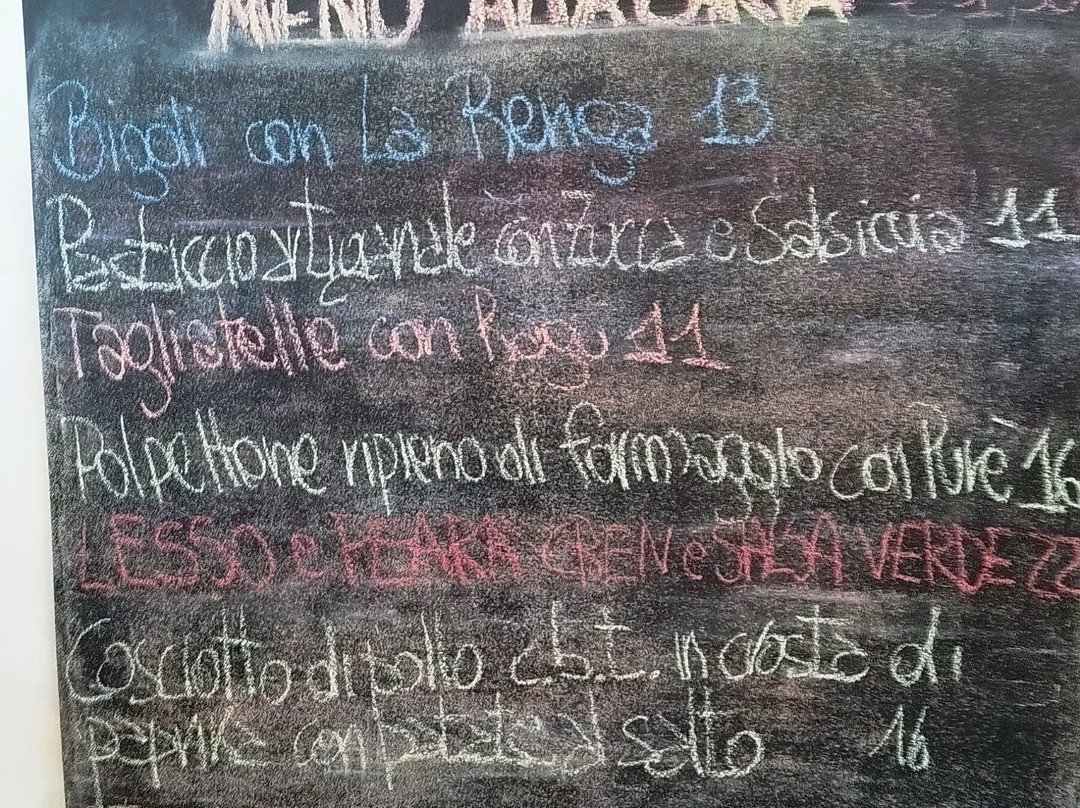 MENÙ ALLA CARTA
Bigoli con La Renga 13
Pasticcio artigianale con Zucca e Salsiccia 11
Tagliatelle con Ragu 11
Polpettone ripieno di formaggio con Purè 16
LESSO e PEARÀ CREN e SALSA VERDE 22
Cosciotto di pollo c.b.t. in crosta di
paprika con patate al salto 16